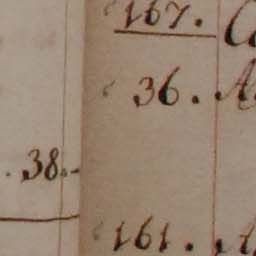 167.
36.
38.-
161.